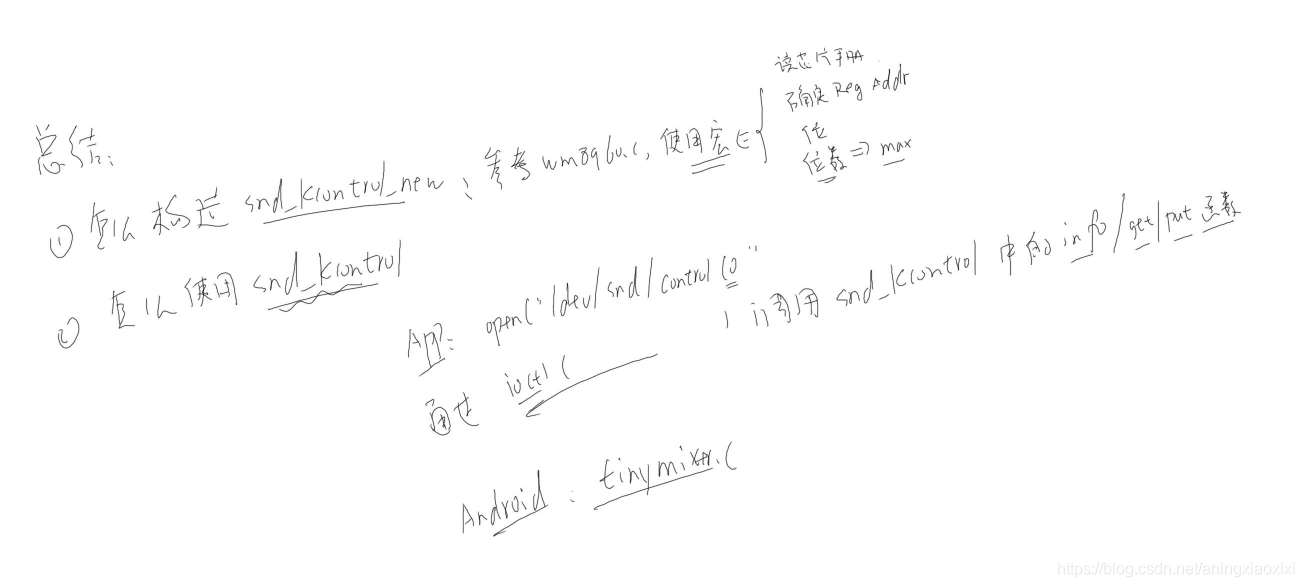 总结:
① 怎么构造 snd_kcontrol_new: 参考 wm8960.c, 使用宏 {
读芯片手册
确定 Reg Addr
位
位数 => max
② 怎么使用 snd_kcontrol
App: open("/dev/snd/controlC0"
通过 ioctl ( 调用 snd_kcontrol 中的 info/get/put 函数
Android: tinymixer.c
https://blog.csdn.net/aningxiaoxixi